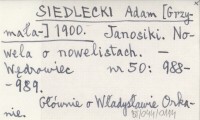 SIEDLECKI Adam [Grzy-
mała-] 1900. Janosiki. No-
wela o nowelistach. —
Wędrowiec nr 50: 988-
-989.
Głównie o Władysławie Orka-
nie.